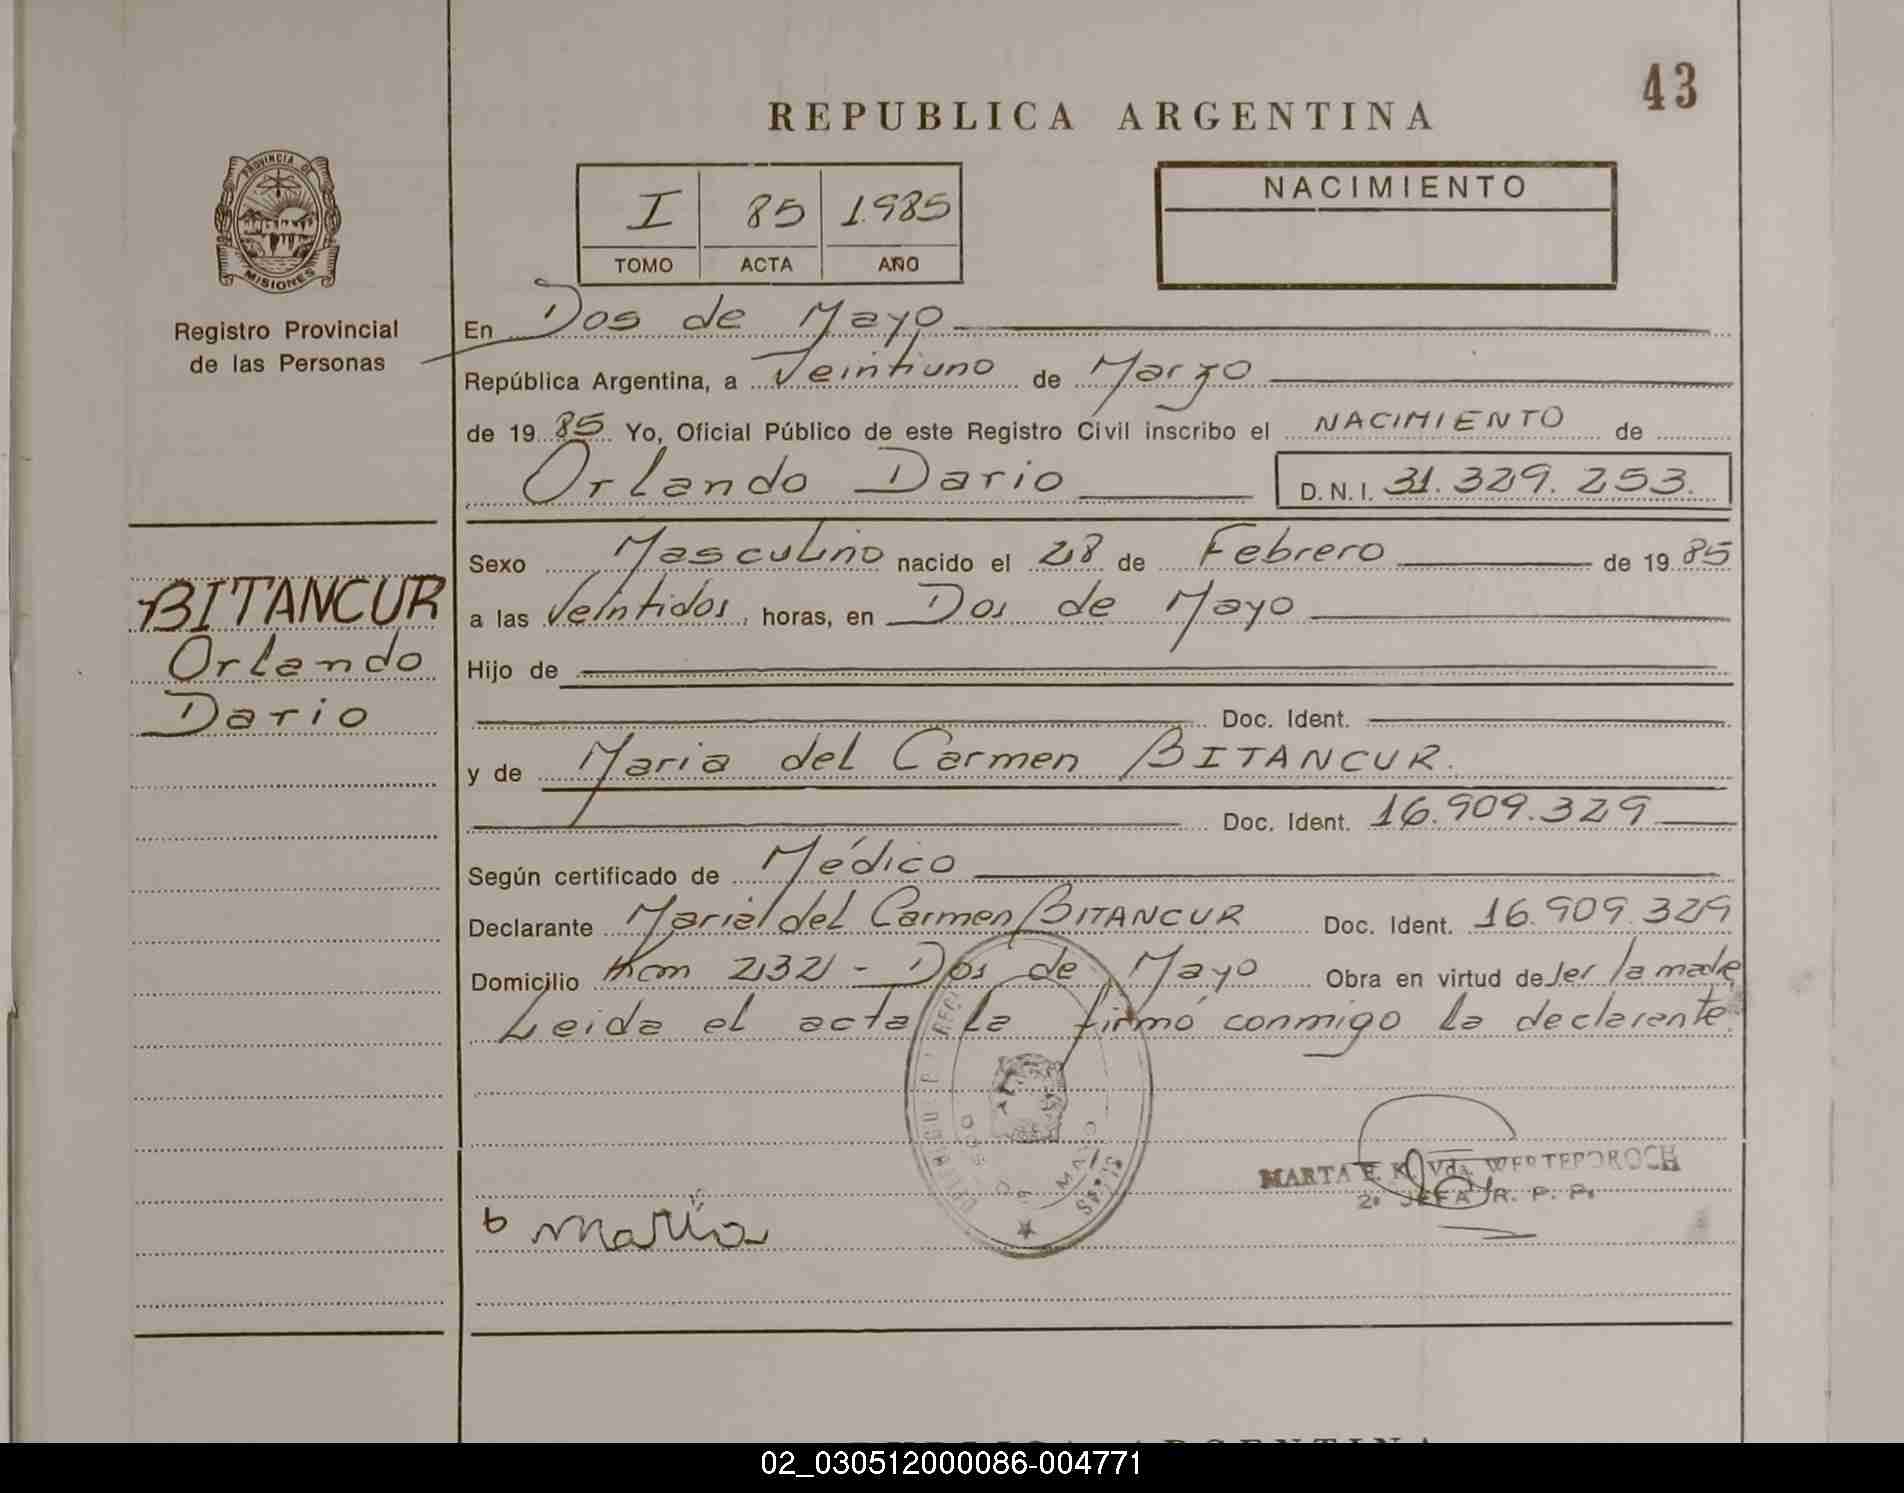 43
REPUBLICA ARGENTINA
PROVINCIA DE
MISIONES
Registro Provincial
de las Personas
I 85 1.985
TOMO ACTA AÑO
NACIMIENTO
En Dos de Mayo
República Argentina, a Veintiuno de Marzo
de 19 85 Yo, Oficial Público de este Registro Civil inscribo el NACIMIENTO de
Orlando Dario D.N.I. 31.329.253.
BITANCUR
Orlando
Dario
Sexo Masculino nacido el 28 de Febrero de 19 85
a las Veintidos, horas, en Dos de Mayo
Hijo de
Doc. Ident.
y de Maria del Carmen BITANCUR.
Doc. Ident. 16.909.329
Según certificado de Médico
Declarante Maria del Carmen BITANCUR Doc. Ident. 16.909.329
Domicilio Km 232 - Dos de Mayo Obra en virtud de ser la madre
Leida el acta la firmó conmigo la declarante.
DOS DE MAYO
MARTA E. K. Vda. WERTEPOROCH
2º JEFA R. P. P.
b maria
REPUBLICA ARGENTINA
02_030512000086-004771